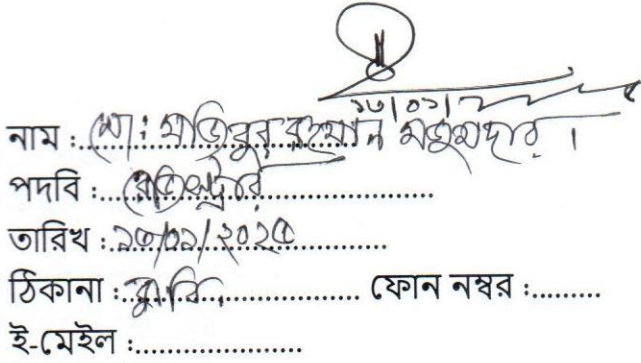 ১৩/০১/
নাম : মো: মজিবুর রহমান মজুমদার ।
পদবি : রেজিস্ট্রার
তারিখ : ১৩/০১/২০২৫
ঠিকানা : কুবি, ফোন নম্বর :
ই-মেইল :